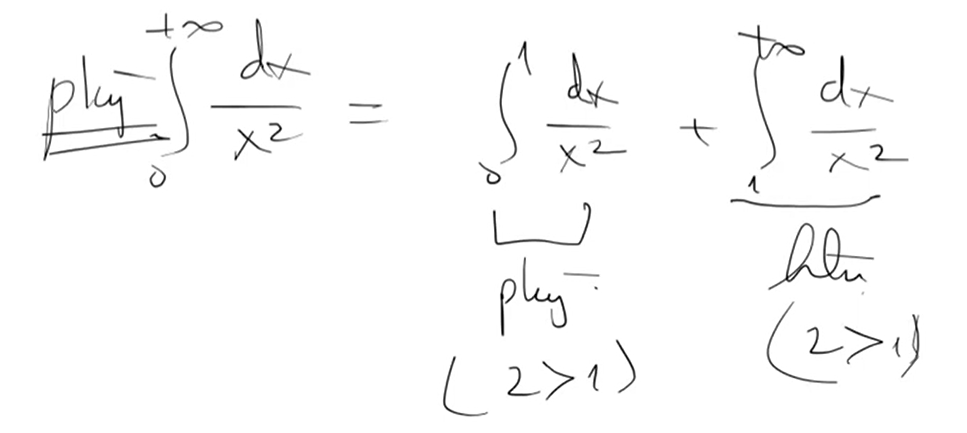 pky ∫₀^{+∞} dx/x² = ∫₀¹ dx/x² + ∫₁^{+∞} dx/x²
pky htu
(2>1) (2>1)